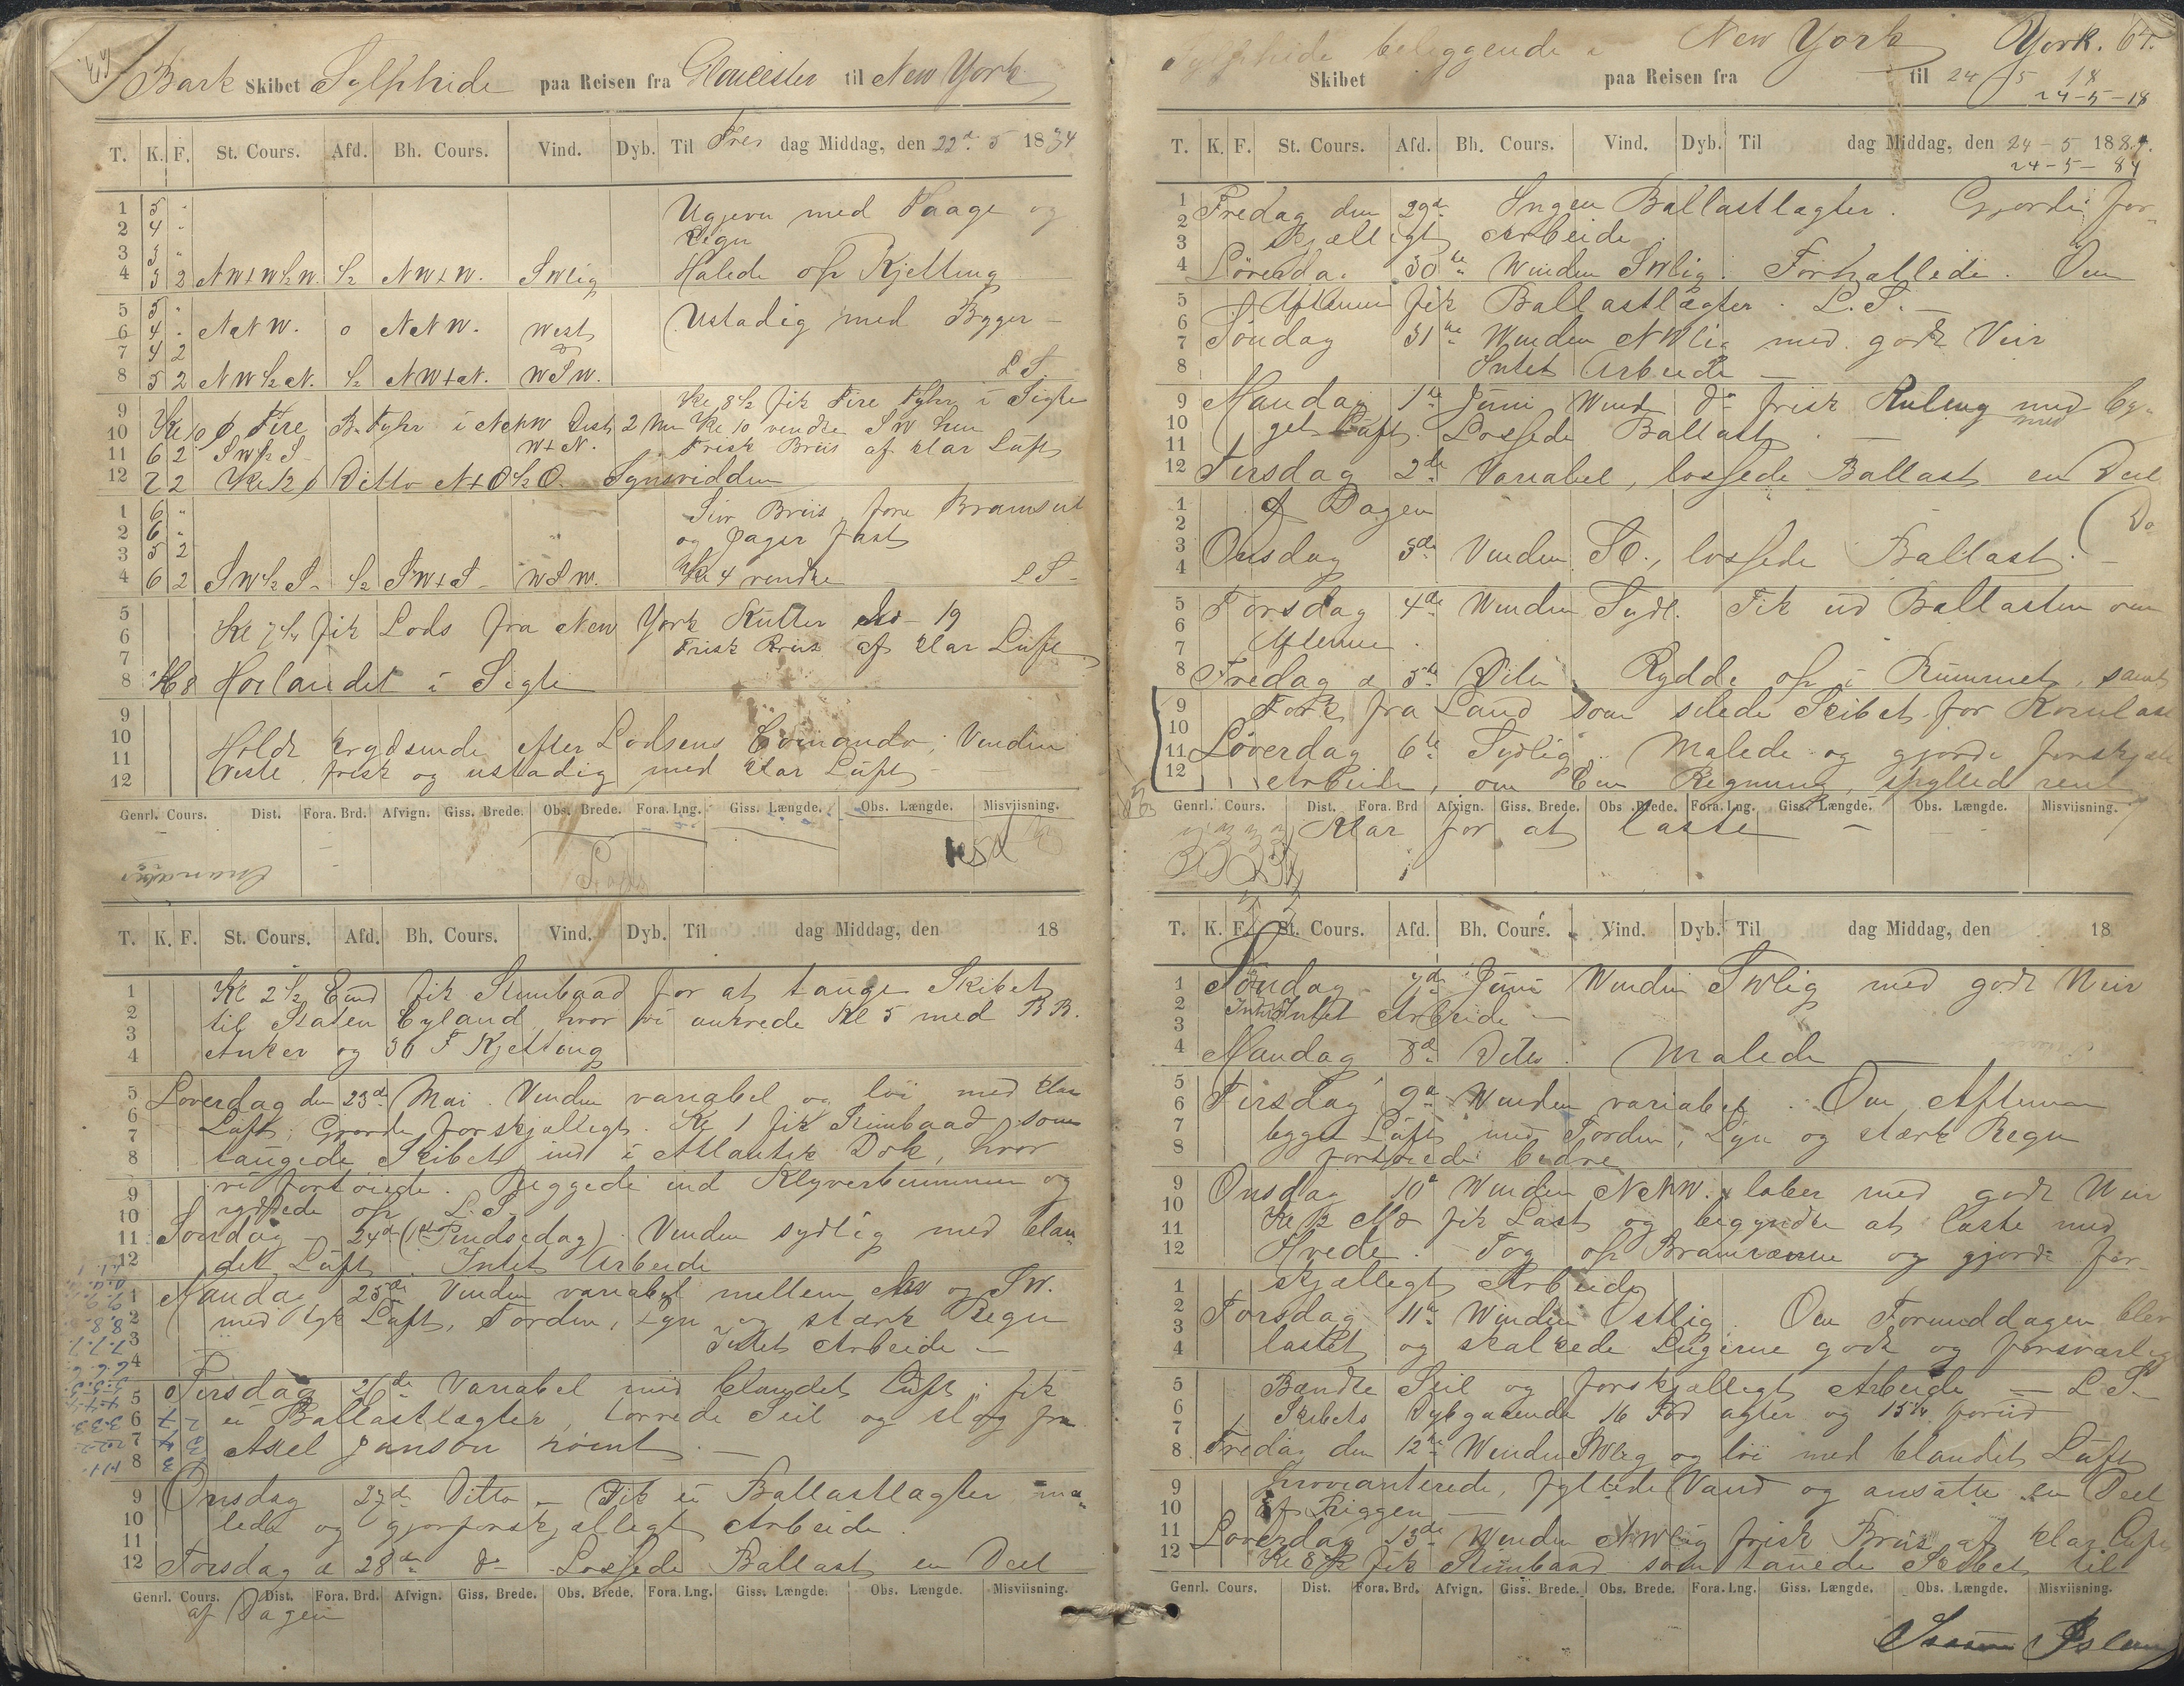 Bark Skibet Sylphide paa Reisen fra Gloucester til New York
T. K. F. St. Cours. Afd. Bh. Cours. Vind. Dyb. Til Fre dag Middag, den 22d 5 1884
1 5 " Ugjevn med Taage og
2 4 " Regn
3 3 "
4 3 2 NW+W½W. ½ NW+W. SWlig Halede op Kjetting
5 5 " Ustadig med Byger
6 4 " NNW. 0 NNW. West
7 4 2
8 5 2 NW½N. ½ NW+N. WSW. L.S.
9 Kl. 8½ fik Fire Fyhr i Sigte
10 Kl 10 Fire B. Fyhr i NNW Dist 2 Kl 10 vendte SW
11 6 2 SW½S W+N. Frisk Briis af klar Luft
12 7 2 Kl 12 Ditto N+O½O. Synsvidden
1 6 " Stiv Briis, fore Bramseil
2 6 " og Jager fast
3 5 2
4 6 2 SW½S ½ SW+S WSW. Kl 4 vendte L.S.
5
6 Kl 7¼ fik Lods fra New York Kutter No 19
7 Frisk Briis af klar Luft
8 Kl 8 Høilandet i Sigte
9
10
11 Holdt krydsende efter Lodsens Comando, Vinden
12 Veste frisk og ustadig med klar Luft
Genrl. Cours. Dist. Fora. Brd. Afvign. Giss. Brede. Obs. Brede. Fora. Lng. Giss. Længde. Obs. Længde. Misviisning.
T. K. F. St. Cours. Afd. Bh. Cours. Vind. Dyb. Til dag Middag, den 18
1 Kl 2½ Emd fik Stimbaad for at tauge Skibet
2 til Staten Eyland, hvor vi ankrede Kl 5 med BB.
3
4 Anker og 30 F Kjetting
5 Løverdag den 23de Mai. Vinden variabel og løi med klar
6 Luft, Gjorde forskjælligt. Kl 1 fik Stimbaad som
7
8 taugede Skibet ind i Atlantik Dok, hvor
9 vi fortøiede. Riggede ind Klyverbummen og
10 ryddede op L.S.
11 Søndag 24de (1ste Pindsedag). Vinden sydlig med blan
12 det Luft. Intet Arbeide
1 Mandag 25de Vinden variabel mellem NW og SW.
2 med tyk Luft, Torden, Lyn og stærk Regn
3 Intet Arbeide
4
5 Tirsdag 26de Variabel med blandet Luft, fik
6 ei Ballastlægter, tørrede Seil og slog fra
7
8 Axel Janson rømt.
9 Onsdag 27de Ditto – Fik ei Ballastlægter ma-
10 lede og gjorforskjælligt Arbeide.
11
12 Torsdag d 28de do Lossede Ballast en Deel
Genrl. Cours. Dist. Fora. Brd. Afvign. Giss. Brede. Obs. Brede. Fora. Lng. Giss. Længde. Obs. Længde. Misviisning.
af Dagen
Sylphide beliggende i New York York. 64.
Skibet paa Reisen fra til 24 5 18
24–5–18
T. K. F. St. Cours. Afd. Bh. Cours. Vind. Dyb. Til dag Middag, den 24–5 1884.
24–5–84
1 Fredag den 29de Ingen Ballastlægter. Gjorde for-
2
3 skjælligt Arbeide
4 Løverdag 30te Winden SWlig. Forhallede. Om
5 Aftenen fik Ballastlægter. L.S.
6
7 Søndag 31te Winden NWlig med godt Veir
8 Intet Arbeide
9 Mandag 1te Juni Wind do frisk Kuling med by-
10 get Luft. Lossede Ballast
11
12 Tirsdag 2de Variabel, lossede Ballast en Deel
1 af Dagen
2
3 Onsdag 3de Vinden SO., lossede Ballast.
4
5 Torsdag 4de Winden Sydl. Fik ud Ballasten om
6
7 Aftenen.
8 Fredag d 5te Dito. Rydde op i Rummet, samt
9 Folk fra Land som silede Skibet for Kornlast
10
11 Løverdag 6te Sydlig. Malede og gjorde forskjæl
12 Arbeide, om Regning, skylled rent
Genrl. Cours. Dist. Fora. Brd Afvign. Giss. Brede. Obs. Brede. Fora. Lng. Giss. Længde. Obs. Længde. Misviisning.
Klar for at laste
T. K. F. St. Cours. Afd. Bh. Cours. Vind. Dyb. Til dag Middag, den 18
1 Søndag 7de Juni Winden SWlig med godt Veir
2 Intet Arbeide
3
4 Mandag 8de Dito. Malede
5
6 Tirsdag 9de Winden variabel. Om Aftenen
7 bygget Luft med Torden, Lyn og stærk Regn
8 fortøiede bedre
9 Onsdag 10de Winden NNW. laber med godt Veir
10
11 fik Last og begyndte at laste med
12 Hvede. Tog op Bramræerne og gjorde for-
1 skjælligt Arbeide
2 Torsdag 11te Winden Ostlig. Om Formiddagen blev
3
4 lastet og skalkede Lugerne godt og forsvarlig
5 Bændte Seil og forskjælligt Arbeide – L.S.
6 Skibets Dybgaaende 16 Fod agter og 15½ forud
7
8 Fredag den 12te Winden SWlig og løi med blandet Luft
9 Provianterede, fyllede Vand og ansatte en Deel
10 af Riggen
11 Løverdag 13de Winden NWlig frisk Briis af klar Luft
12 fik Stimbaad som tauede Skibet til
Genrl. Cours. Dist. Fora. Brd. Afvign. Giss. Brede. Obs. Brede. Fora. Lng. Giss. Længde. Obs. Længde. Misviisning.